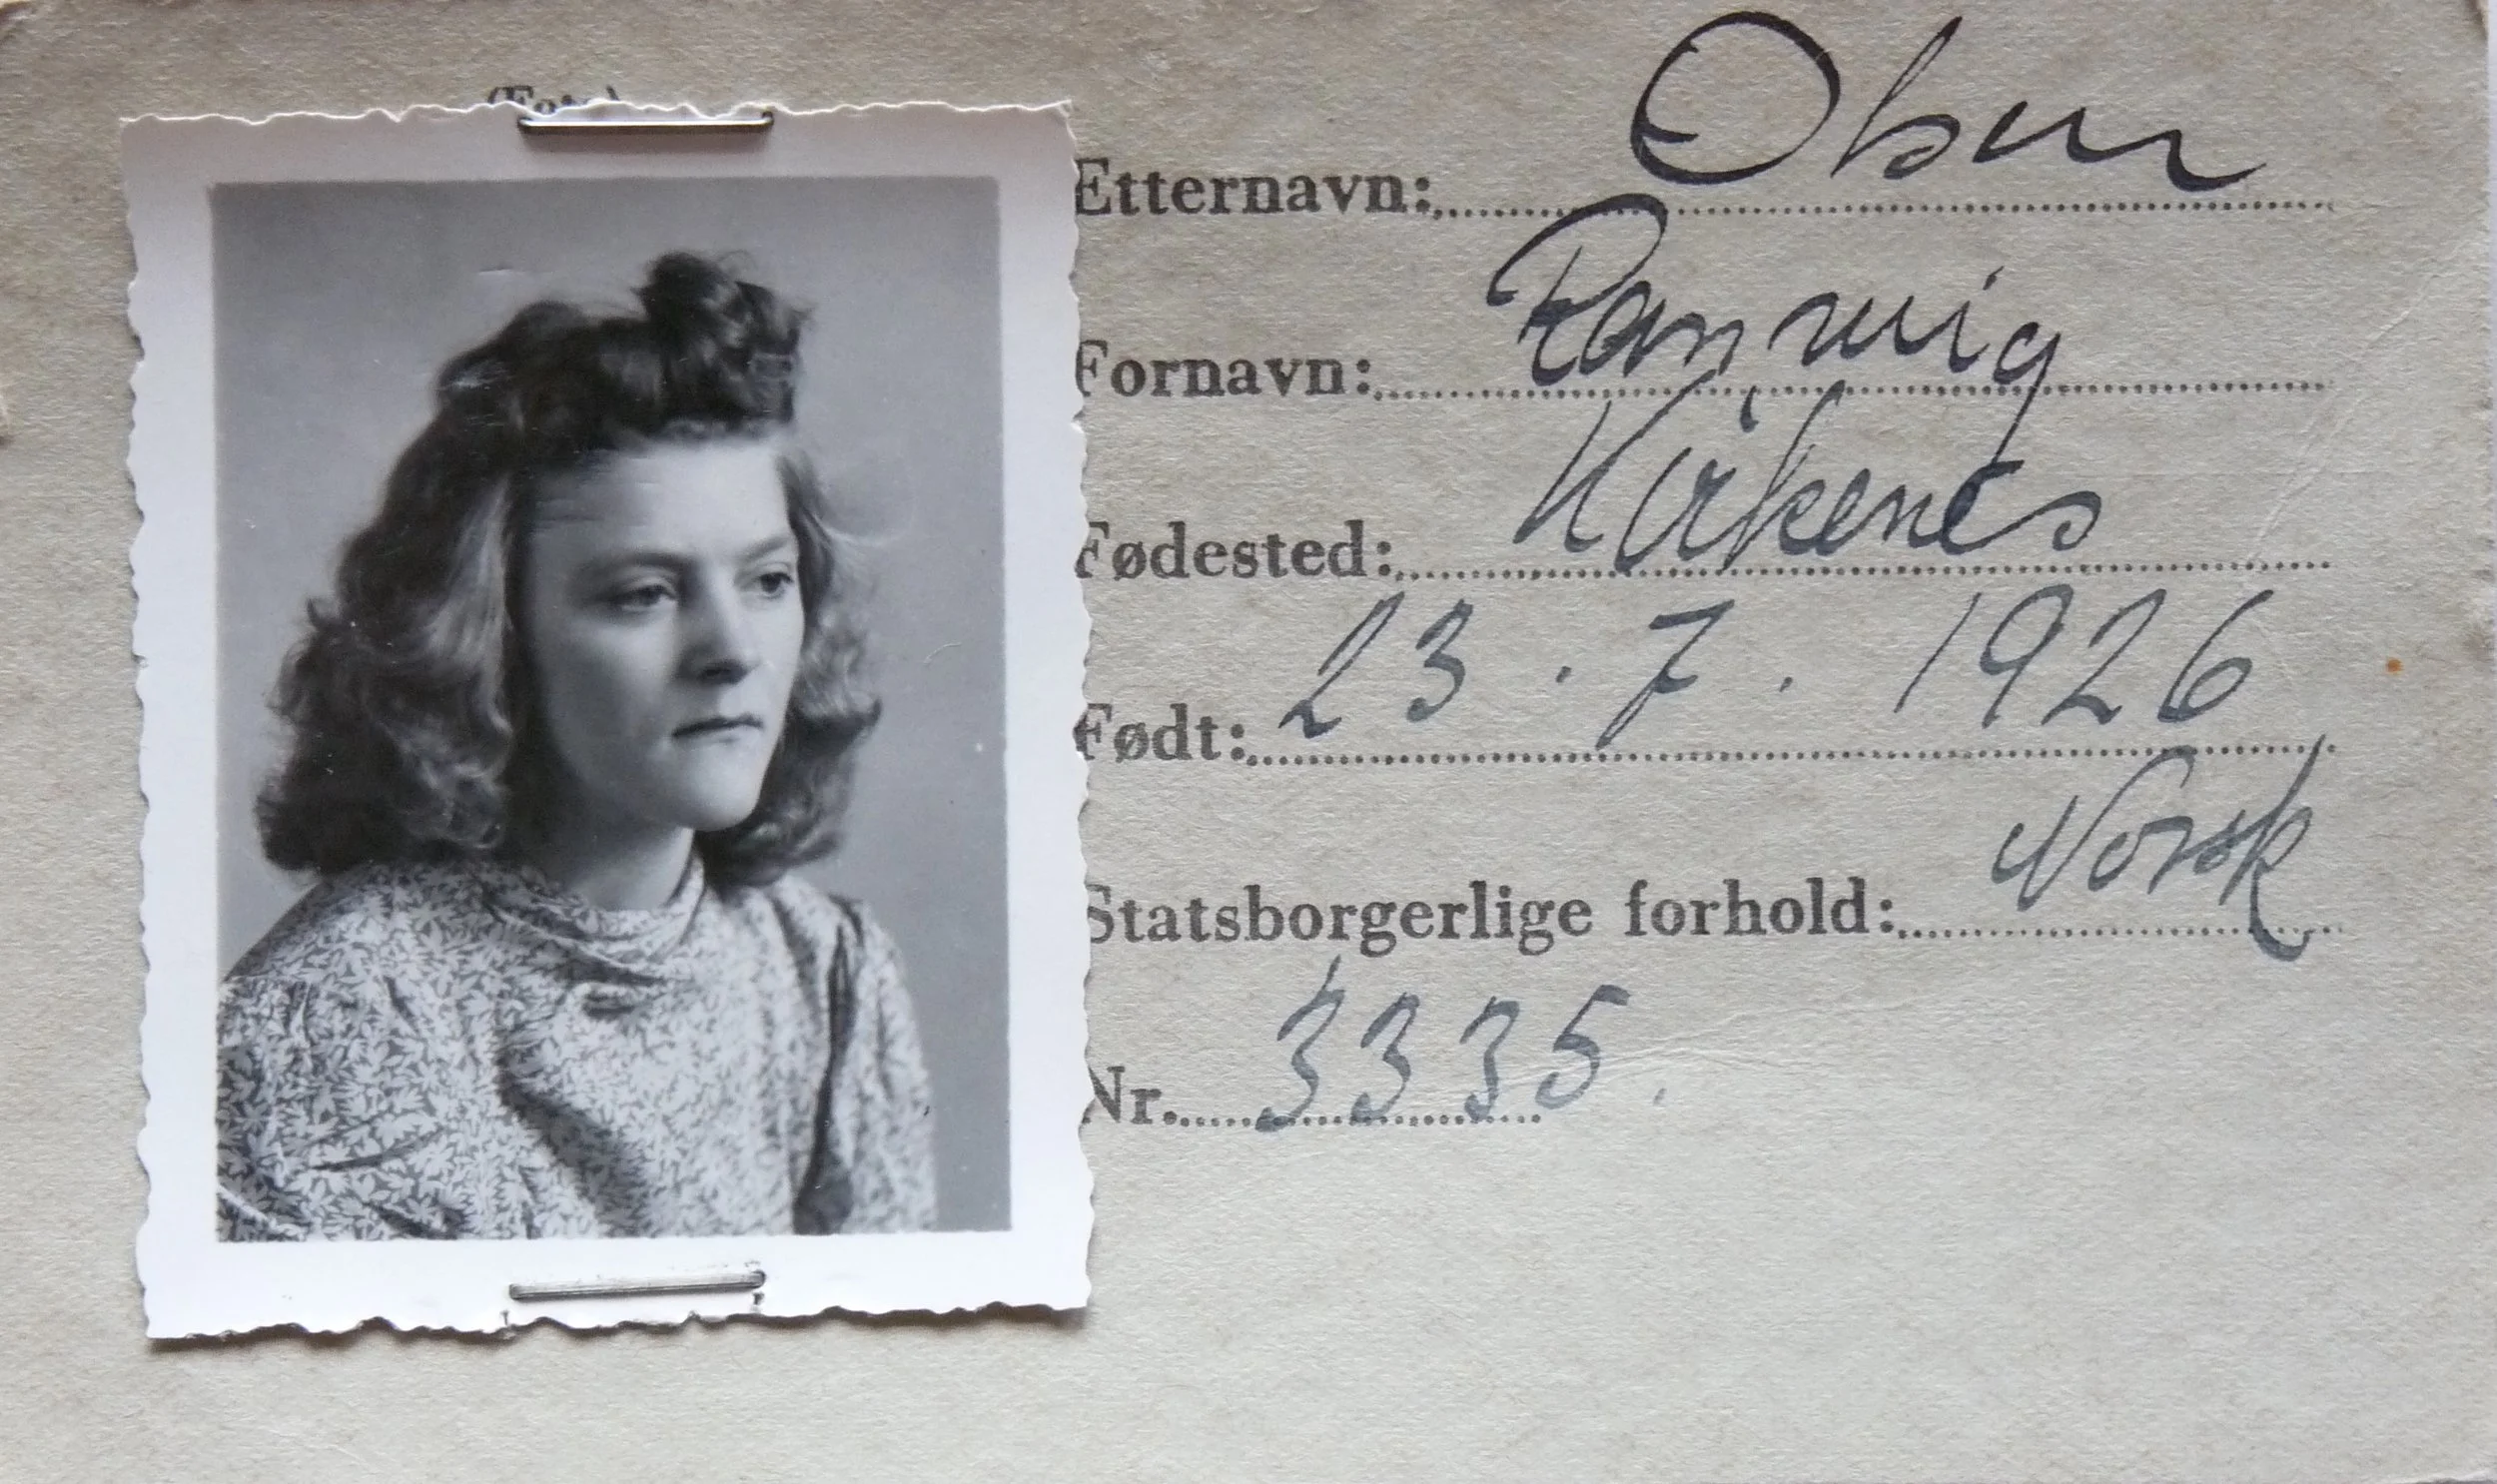 (Foto)
Etternavn: Olsen
Fornavn: Ranveig
Fødested: Kirkenes
Født: 23 . 7 . 1926
Statsborgerlige forhold: Norsk
Nr. 3335.